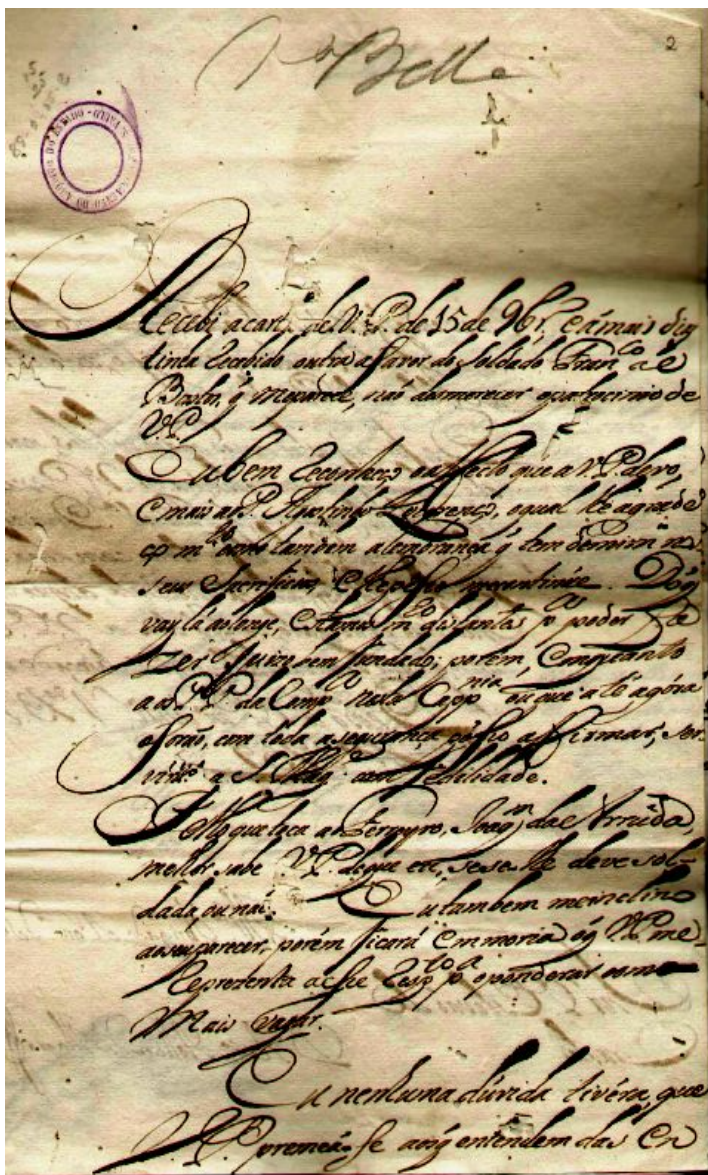 2
P.e Belle
Recebi a cart.a de V. P. de 15 de 9br.o e a mais dias
tinha Recebido outra a favor do Soldado Fran.co
Bastos, q̃ me parece, não desmerecer o patrocinio de
V. P.
Eu bem Reconheço o affecto que a V. P. devo,
e mais ao P. Lourenço, o qual lhe agrade
ço m.to como tambem a lembrança q̃ tem de mim nos
seus Sacrificios, e lhe peço me continúe. Do q̃
vay lá ao longe, estamos m.to distantes p.a poder fa
zer juizo bem fundado; porém, em quanto
aos P. P. da Comp.a nesta Capp.nia ou que até agóra
o forão, com toda a segurança posso affirmar, ser
virẽ a S. Mag.e com fidelidade.
Pello que toca ao Joaq.m da Arruda,
melhor sabe V. P. do que eu, se se lhe deve sol-
dada, ou não. Eu tambem me inclino
ao seu parecer, porém ficará em moria o q̃ V. P. me
Reprezenta a esse Resp.to p.a o ponderar com
Mais vagar.
Eu nenhuma dúvida tivéra, que
V. P. se aos q̃ entendem das En